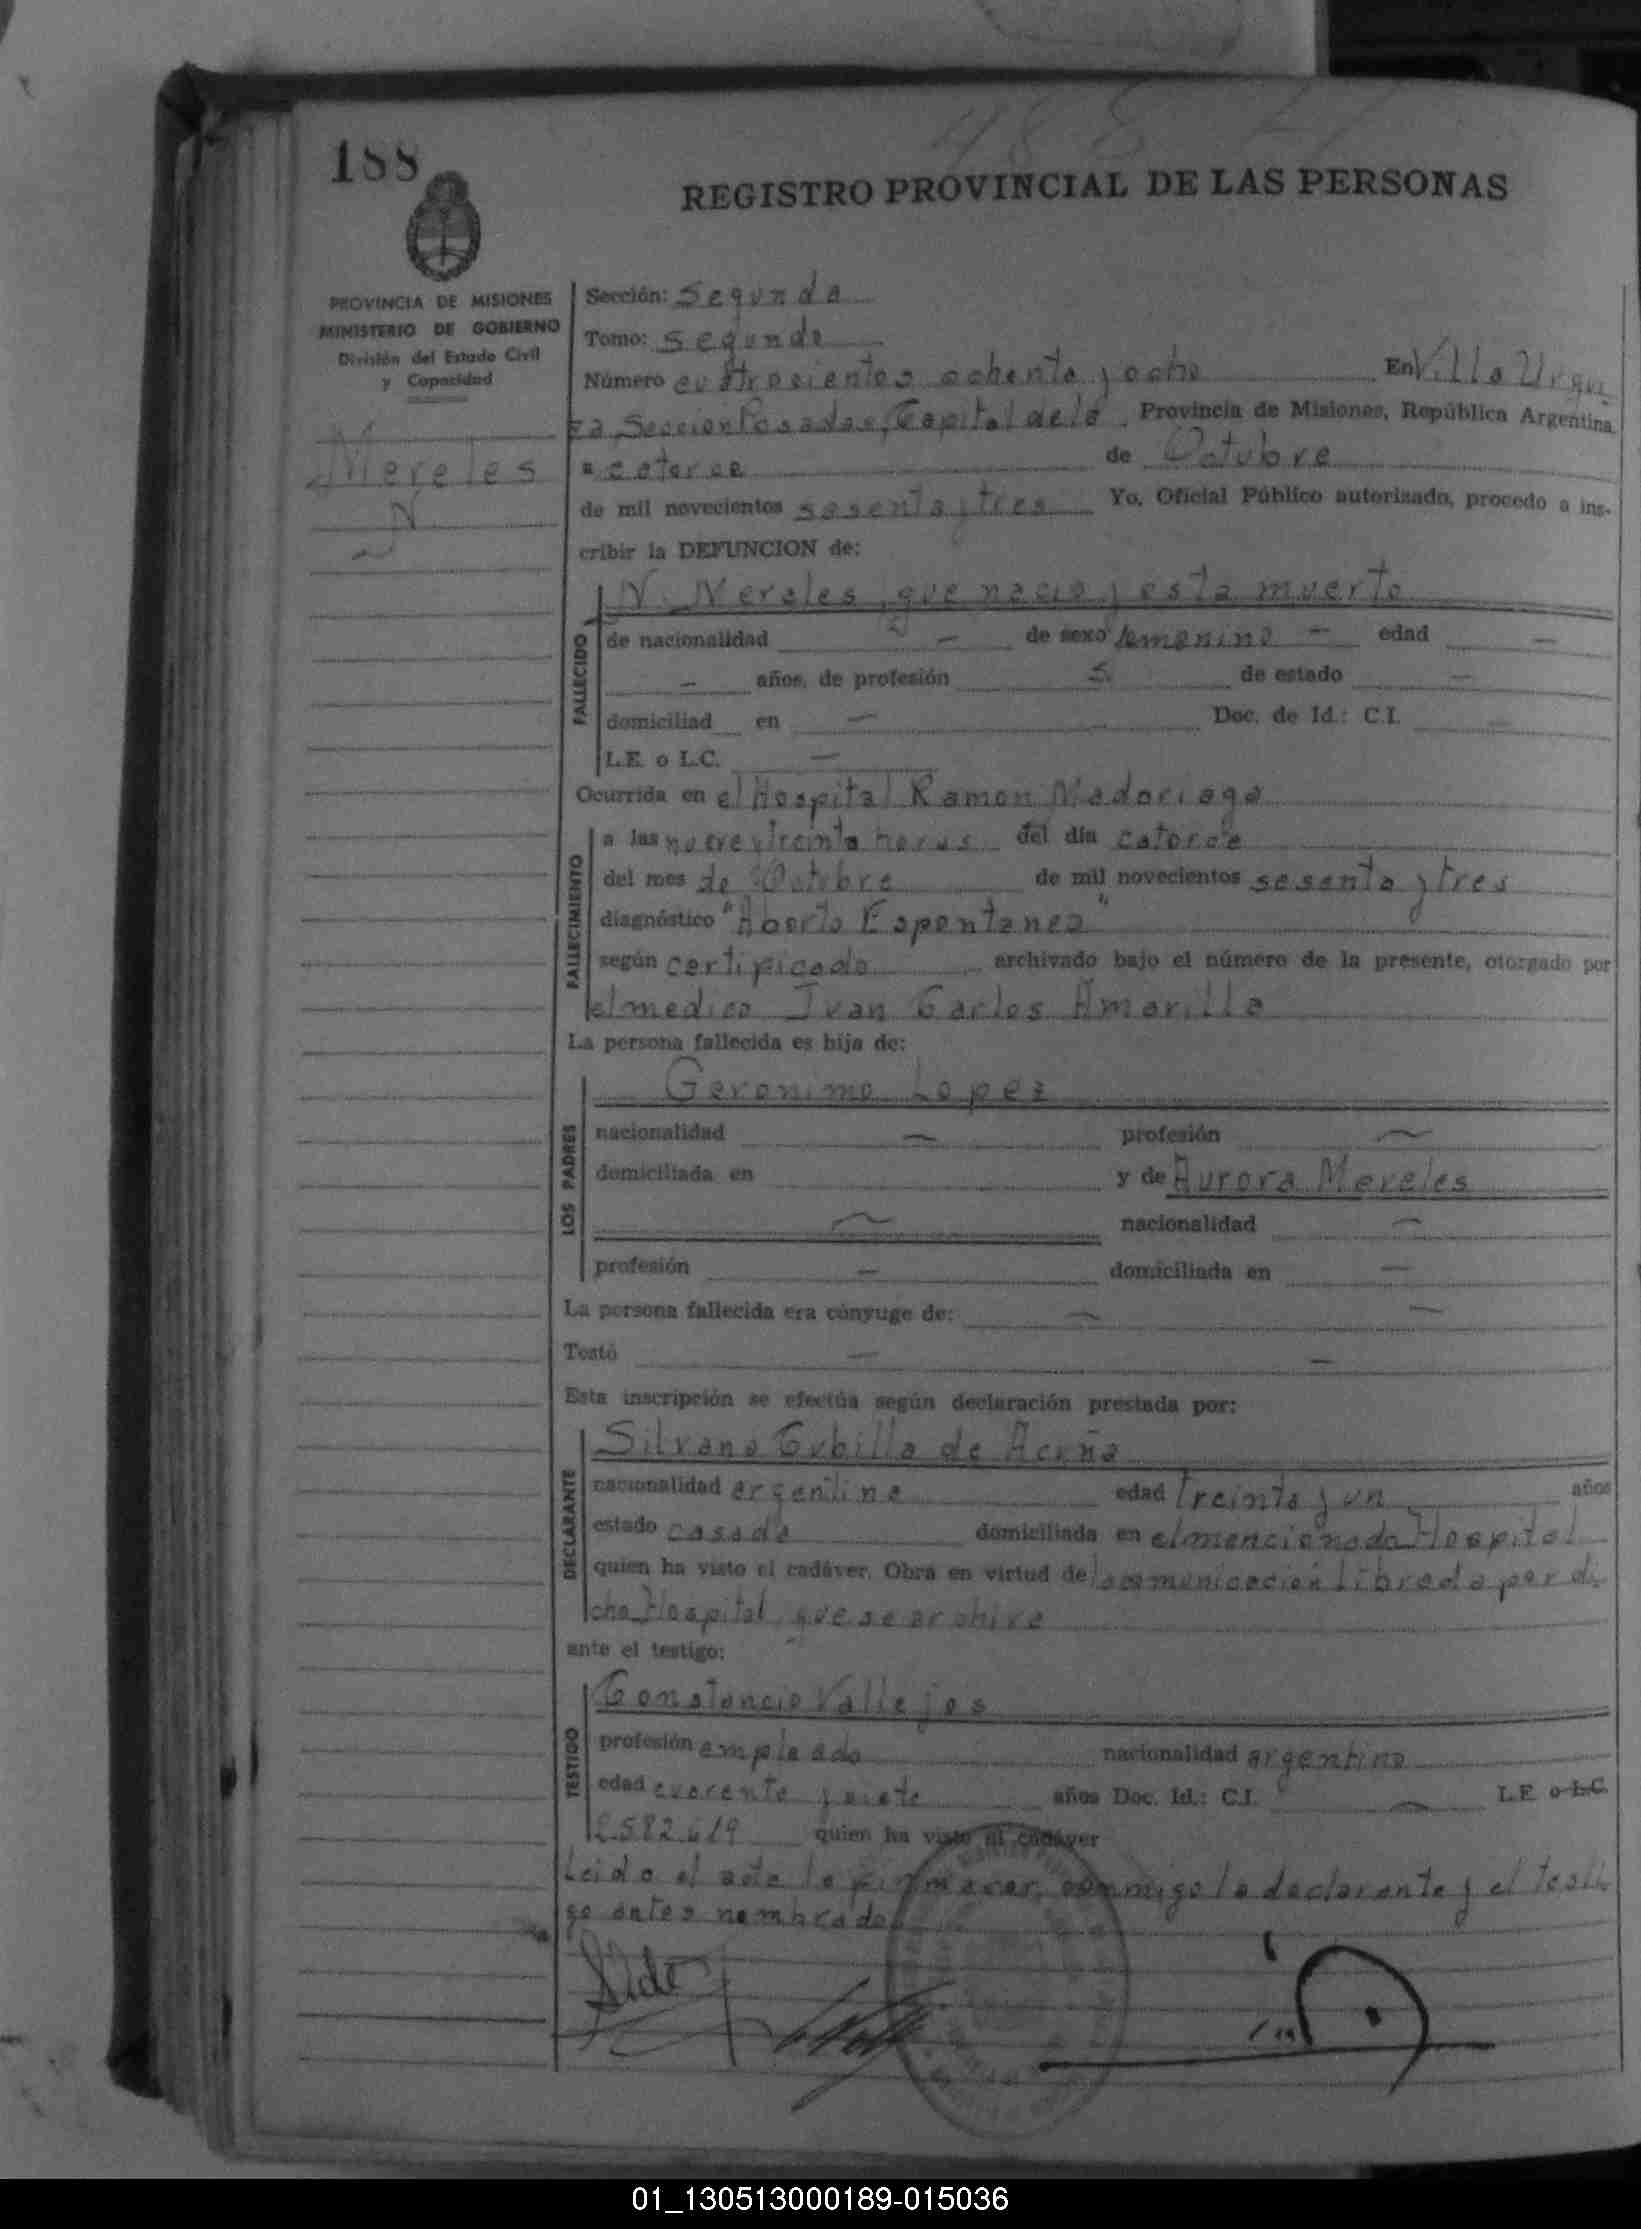 188
488
REGISTRO PROVINCIAL DE LAS PERSONAS
PROVINCIA DE MISIONES
MINISTERIO DE GOBIERNO
División del Estado Civil
y Capacidad
Mereles
N
Sección: Segunda
Tomo: segundo
Número cuatrosientos ochenta y ocho En Villa Urqui
za Seccion Posadas, Capital de la, Provincia de Misiones, República Argentina,
a catorce de Octubre
de mil novecientos sesenta y tres Yo, Oficial Público autorizado, procedo a ins-
cribir la DEFUNCION de:
N. Mereles, que nacio y esta muerto
FALLECIDO
de nacionalidad — de sexo femenino — edad —
— años, de profesión de estado —
domiciliad en — Doc. de Id.: C.I. —
L.E. o L.C. —
Ocurrida en el Hospital Ramon Madariaga
FALLECIMIENTO
a las nueve y treinta horas del día catorce
del mes de Octubre de mil novecientos sesenta y tres
diagnóstico "Aborto Espontaneo"
según certificado archivado bajo el número de la presente, otorgado por
el medico Juan Carlos Amarilla
La persona fallecida es hija de:
LOS PADRES
Geronimo Lopez
nacionalidad — profesión —
domiciliada en y de Aurora Mereles
— nacionalidad —
profesión — domiciliada en —
La persona fallecida era cónyuge de: — —
Testó — —
Esta inscripción se efectúa según declaración prestada por:
DECLARANTE
Silvana Cubilla de Acuña
nacionalidad argentina edad treinta y un años
estado casada domiciliada en el mencionado Hospital
quien ha visto el cadáver. Obra en virtud de la comunicacion librada por di
cho Hospital, que se archiva
ante el testigo:
TESTIGO
Constancio Vallejos
profesión empleado nacionalidad argentino
edad cuarenta y siete años Doc. Id.: C.I. — L.E. o L.C.
2.582.619 quien ha visto el cadáver
Leida el acta la firmaron conmigo la declarante y el testi
go antes nombrados
01_130513000189-015036